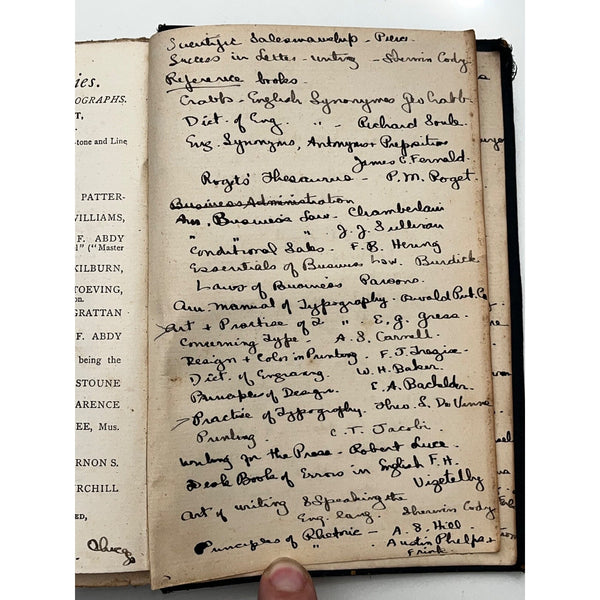 ies.
OGRAPHS.
T,
-tone and Line
PATTER-
WILLIAMS,
F. ABDY
l" ("Master
KILBURN,
TOEVING,
on.
GRATTAN
F. ABDY
being the
STOUNE
ARENCE
EE, Mus.
ERNON S.
URCHILL
ED,
Scientific Salesmanship - Pierce
Success in Letter-writing - Sherwin Cody
Reference books.
Crabbs - English Synonymes Geo Crabb.
Dict. of Eng. " - Richard Soule.
Eng. Synonyms, Antonyms + Prepositions
James C. Fernald.
Rogets' Thesaurus - P. M. Roget.
Business Administration
Am. Business Law - Chamberlain
" " " J. J. Sullivan
Conditional Sales - F. B. Hering
Essentials of Business Law. Burdick
Laws of Business Parsons.
Am. Manual of Typography - Oswald Pub. Co
Art + Practice of T " - E. G. Gress.
Concerning Type - A. S. Carnell.
Design + Color in Printing. F. J. Trezise
Dict. of Engraving W. H. Baker.
Principles of Design. E. A. Bachelder.
Practice of Typography. Theo. L. De Vinne
Printing. C. T. Jacobi.
Writing for the Press - Robert Luce.
Desk Book of Errors in English F. H.
Vizetelly
Art of writing & Speaking the
Eng. lang. Sherwin Cody
Principles of Rhetoric - A. S. Hill.
" - Austin Phelps +
Frink.